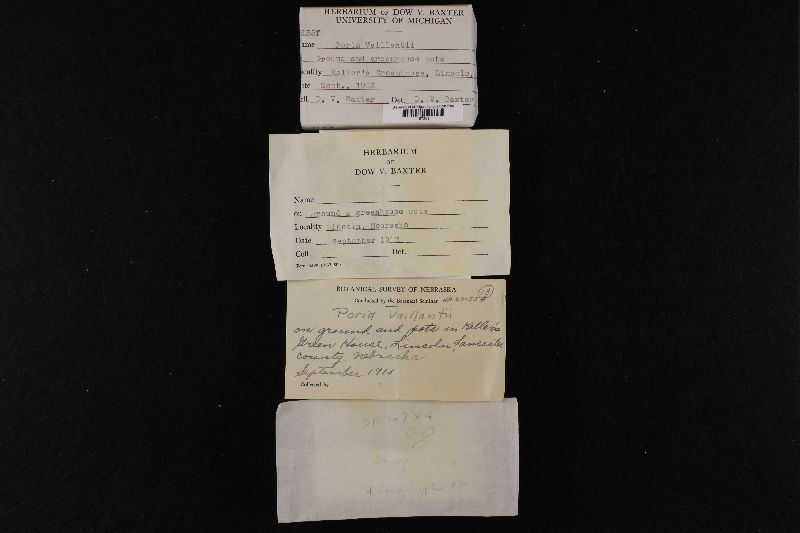 HERBARIUM OF DOW V. BAXTER
UNIVERSITY OF MICHIGAN
155f
ame Poria Vaillantii
Ground and greenhouse pots
ocality Keller's Greenhouse, Lincoln,
ate Sept., 1913
ll. D. V. Baxter Det. D. V. Baxter
HERBARIUM
OF
DOW V. BAXTER
Name
on ground & greenhouse pots
Locality Lincoln, Nebraska
Date September 1913
Coll. Det.
BOTANICAL SURVEY OF NEBRASKA
Conducted by the Botanical Seminar
13
Poria Vaillantii
on ground and pots in Keller's
Green House, Lincoln, Lancaster
County, Nebraska
September 1913
Collected by